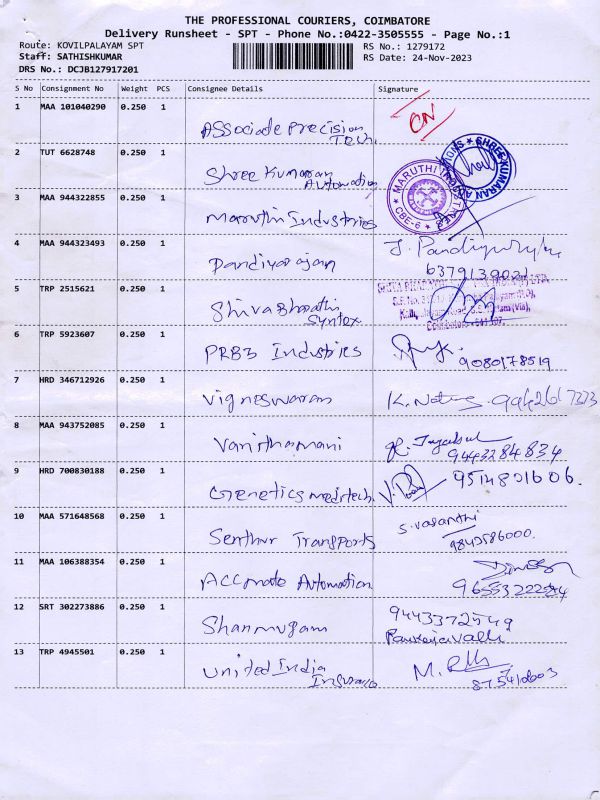 THE PROFESSIONAL COURIERS, COIMBATORE
Delivery Runsheet - SPT - Phone No.:0422-3505555 - Page No.:1
Route: KOVILPALAYAM SPT
Staff: SATHISHKUMAR
DRS No.: DCJB127917201
RS No.: 1279172
RS Date: 24-Nov-2023
S No Consignment No Weight PCS Consignee Details Signature
1 MAA 101040290 0.250 1
Associate Precision
Tech.
CN
2 TUT 6628748 0.250 1
Shree Kumaran
Automation
SHREE KUMARAN
3 MAA 944322855 0.250 1
Maruthi Industries
MARUTHI INDUSTRIES
CBE-6
4 MAA 944323493 0.250 1
Pandiyarajan
6379139021
5 TRP 2515621 0.250 1
Shiva Bharathi
Syntex
6 TRP 5923607 0.250 1
PRB3 Industries
9080178519
7 HRD 346712926 0.250 1
Vigneswaran
8 MAA 943752085 0.250 1
Vanithamani
9443284834
9 HRD 700830188 0.250 1
Genetics meditech.
9514801606.
10 MAA 571648568 0.250 1
Senthur Transports
S. Vasanthi
9843586000.
11 MAA 106388354 0.250 1
Accmate Automation
12 SRT 302273886 0.250 1
Shanmugam
9443372549
13 TRP 4945501 0.250 1
United India
Insurance